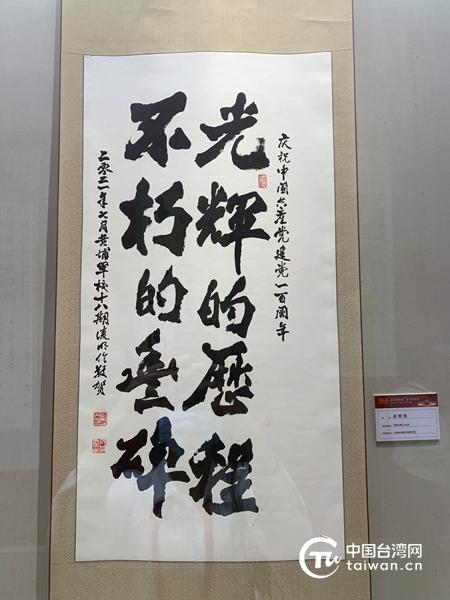 庆祝中國共產党建党一百周年
光輝的歷程
不朽的豐碑
二零二一年七月黄埔軍校十八期敬贺
中国台湾网
taiwan.cn